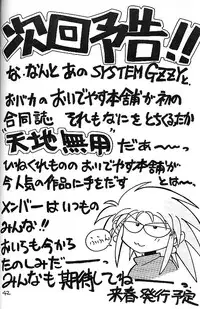 次回予告!!
な・なんと あの SYSTEM GZZYと、
オバカの おいでやす本舗が初の
合同誌 それもなにをとちくるたか
"天地無用" だぁ〜〜っ
ひねくれものの おいでやす本舗が
今人気の作品に手をだす とは〜、
メンバーはいつもの
みんな!!
おいらも今から
たのしみだ〜〜っ
みんなも期待してね
来春発行予定
42